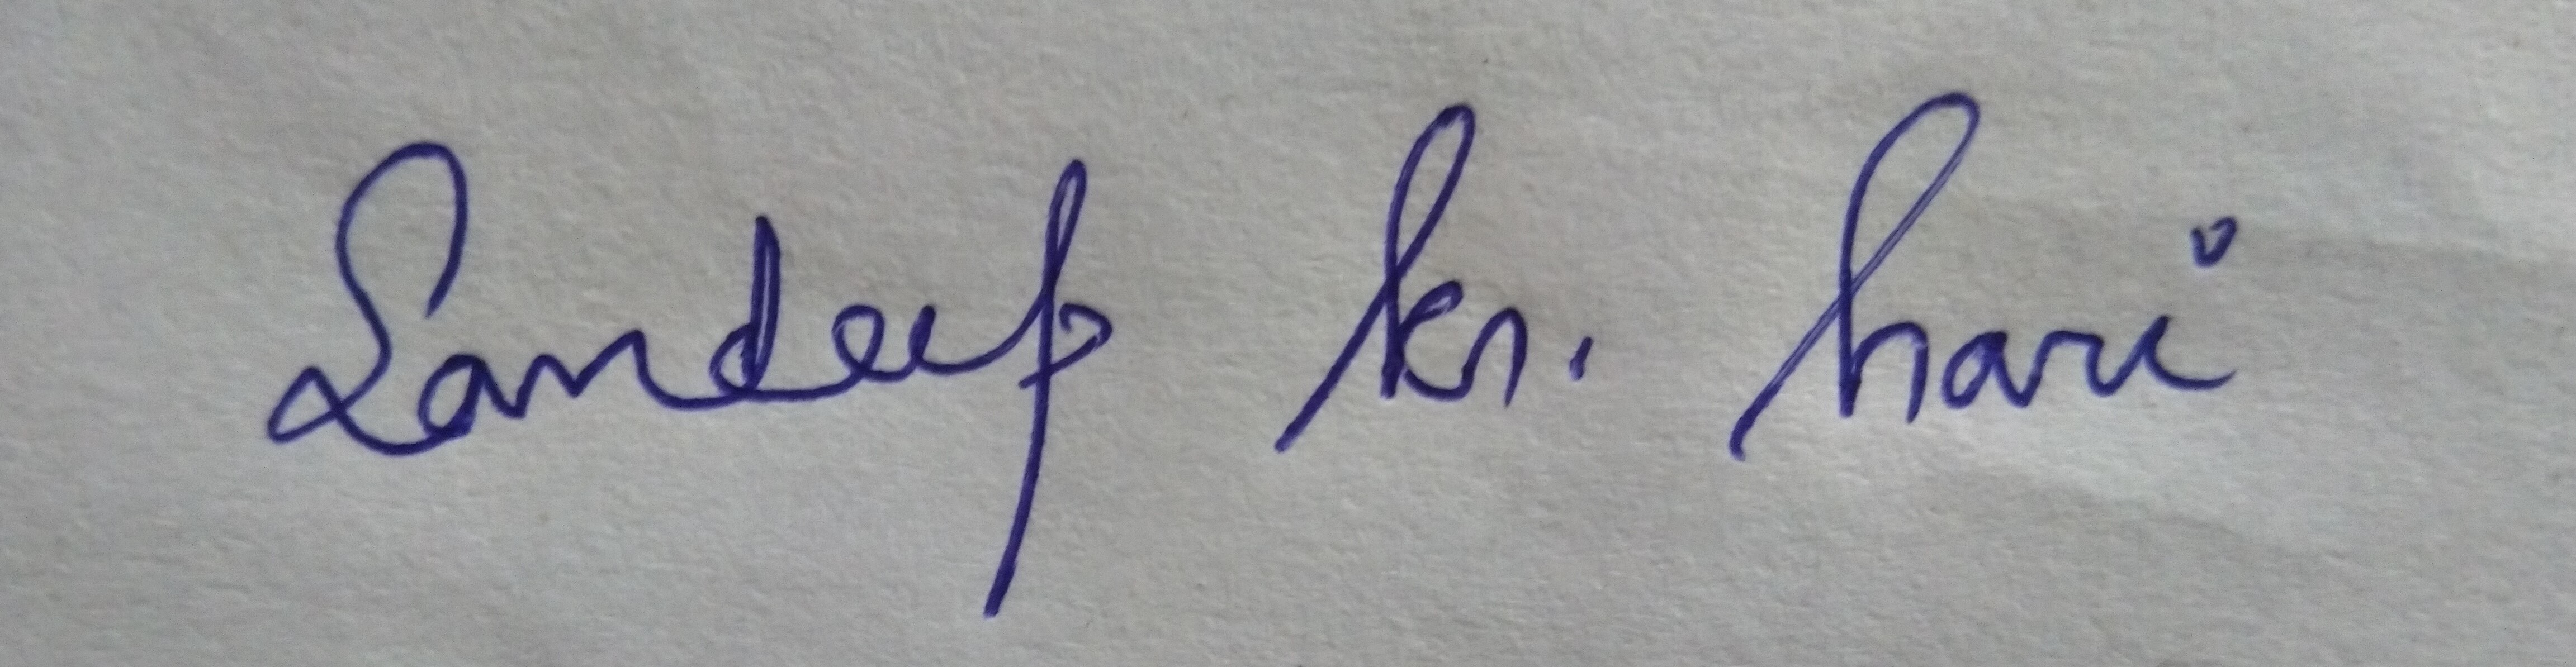 Sandeep kr. hari